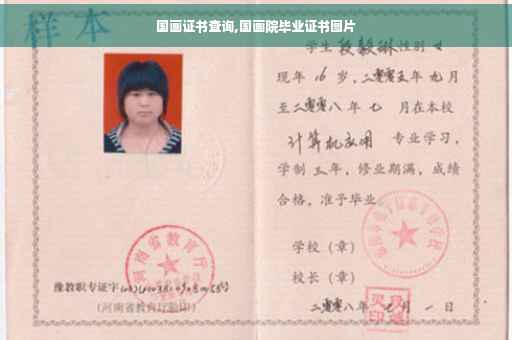 国画证书查询,国画院毕业证书图片
样本
学生段毅琳性别女
现年16岁,二零零五年九月
至二零零八年七月在本校
计算机应用专业学习,
学制三年,修业期满,成绩
合格,准予毕业
学校(章)
校长(章)
二零零八年七月一日
河南省教育厅
豫教职专证字
(河南省教育厅验印)